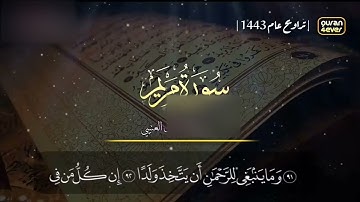 | تراويح عام 1443 |
quran
4ever
سُورَةُ مَرْيَم
العتيبي
﴿٩١﴾ وَمَا يَنۢبَغِى لِلرَّحْمَٰنِ أَن يَتَّخِذَ وَلَدًا ﴿٩٢﴾ إِن كُلُّ مَن فِى